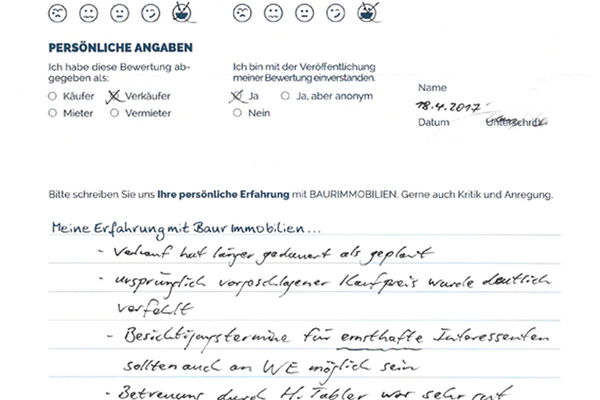 PERSÖNLICHE ANGABEN
Ich habe diese Bewertung ab-
gegeben als:
Käufer Verkäufer
Mieter Vermieter
Ich bin mit der Veröffentlichung
meiner Bewertung einverstanden.
Ja Ja, aber anonym
Nein
Name
18.4.2017
Datum Unterschrift
Bitte schreiben Sie uns Ihre persönliche Erfahrung mit BAURIMMOBILIEN. Gerne auch Kritik und Anregung.
Meine Erfahrung mit Baur Immobilien...
- Verkauf hat länger gedauert als geplant
- ursprünglich vorgeschlagener Kaufpreis wurde deutlich
verfehlt
- Besichtigungstermine für ernsthafte Interessenten
sollten auch an WE möglich sein
- Betreuung durch H. Tabler war sehr gut